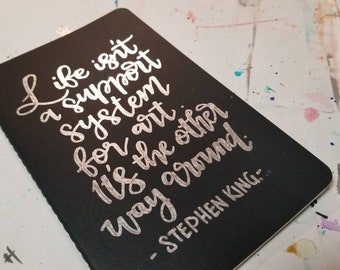 Life isn't
a support
system
for art.
It's the other
way around.
- STEPHEN KING -